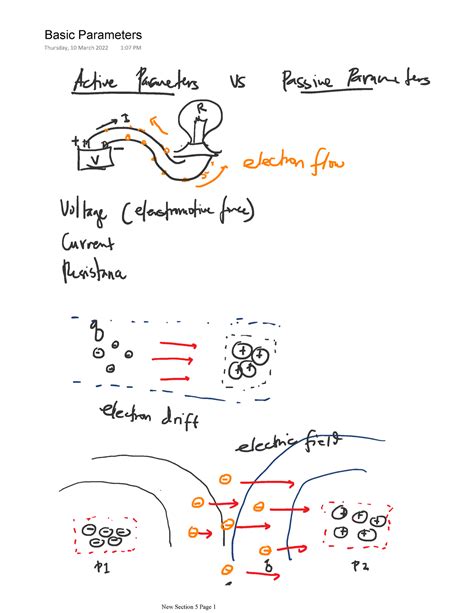 Basic Parameters
Thursday, 10 March 2022 1:07 PM
Active Parameters vs Passive Parameters
I R
+ -
V
electron flow
Voltage (electromotive force)
Current
Resistana
q
electron drift
electric field
P1 P2
New Section 5 Page 1